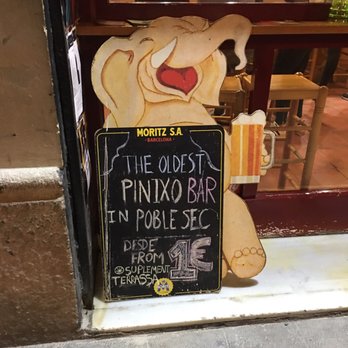 MORITZ S.A.
BARCELONA
THE OLDEST
PINTXO BAR
IN POBLE SEC
DESDE
FROM 1€
SUPLEMENT
TERRASSA